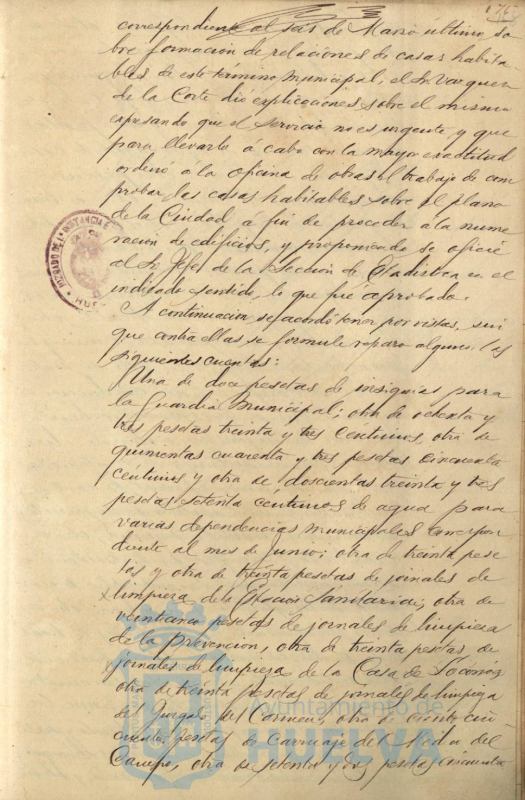 176
correspondiente al seis de Marzo último so-
bre formacion de relaciones de casas habita-
bles de este término municipal, el Sr. Vazquez
de la Corte dió esplicaciones sobre el mismo
expresando que el servicio no es urgente y que
para llevarlo a cabo con la mayor exactitud
ordenó á la oficina de obras el trabajo de com
probar las casas habitables sobre el plano
de la Ciudad á fin de proceder á la nume
racion de edificios, y proponiendo se oficie
al Sr. Jefe de la Seccion de Estadistica en el
indicado sentido, lo que fué aprobado.
A continuacion se acordó tener por vistas, sin
que contra ellas se formule reparo alguno, las
siguientes cuentas:
Una de doce pesetas de insignias para
la Guardia Municipal; otra de ochenta y
tres pesetas treinta y tres centimos, otra de
quinientas cuarenta y tres pesetas cincuenta
centimos y otra de doscientas treinta y tres
pesetas setenta céntimos de agua para
varias dependencias municipales correspon
diente al mes de Junio; otra de treinta pese
tas y otra de treinta pesetas de jornales de
limpieza de la Estacion Sanitaria; otra de
veinticinco pesetas de jornales de limpieza
de la Prevencion, otra de treinta pesetas de
jornales de limpieza de la Casa de Socorro,
otra de treinta pesetas de jornales de limpieza
del Juzgado del Carmen, otra de ciento cin
cuenta pesetas de carruaje del Médico del
Campo, otra de setenta y dos pesetas cincuenta
JUZGADO DE 1ª INSTANCIA
HUE
Ayuntamiento de
HUELVA